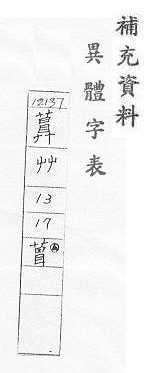 補充資料
異體字表
12137
艸
13
17